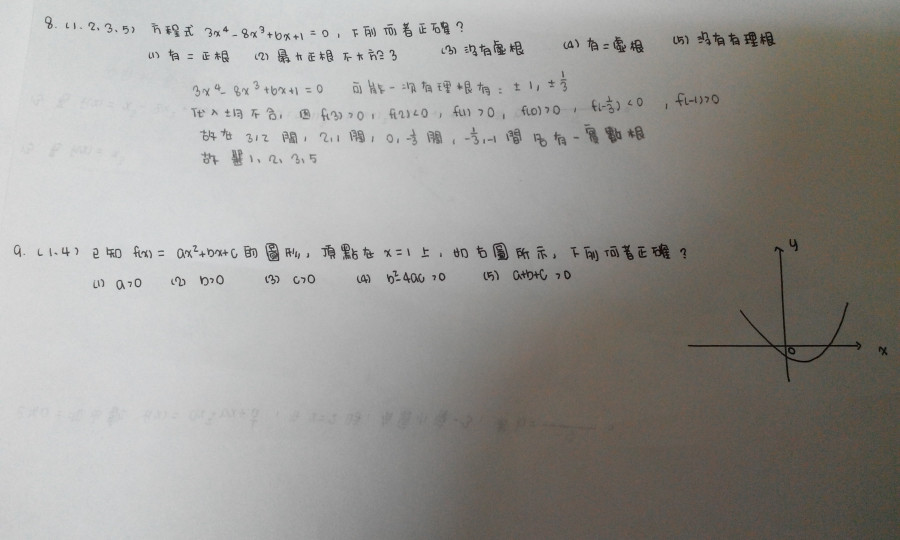 8. (1.2.3.5) 方程式 3x⁴-8x³+6x+1=0, 下列何者正確?
(1) 有二正根 (2) 最大正根不大於3 (3) 沒有虛根 (4) 有二虛根 (5) 沒有有理根
3x⁴-8x³+6x+1=0 可能一次有理根有: ±1, ±1/3
代入均不合, 因 f(3)>0, f(2)<0, f(1)>0, f(0)>0, f(-1/3)<0, f(-1)>0
故在 3,2 間, 2,1 間, 0,-1/3 間, -1/3,-1 間 各有一實數根
故選 1、2、3、5
9. (1.4) 已知 f(x)= ax²+bx+c 的圖形, 頂點在 x=1 上, 如右圖所示, 下列何者正確?
(1) a>0 (2) b>0 (3) c>0 (4) b²-4ac>0 (5) a+b+c>0
y
0
x